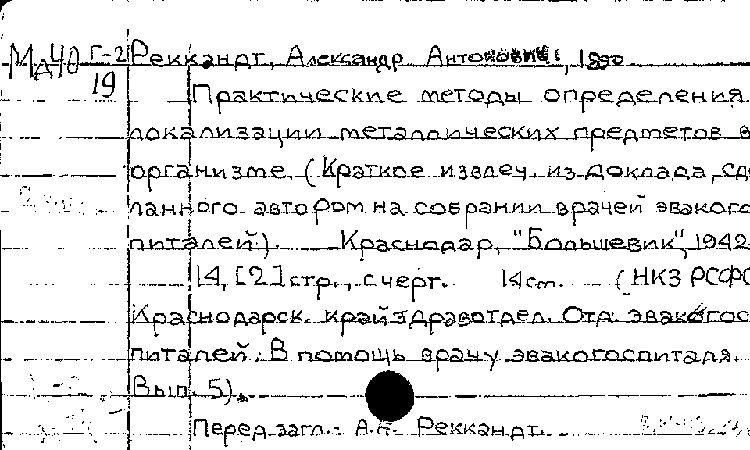 Мд40 Г-2 Реккандт, Александр Антонович, 1890
19 Практические методы определения
локализации металлических предметов в
организме. (Краткое извлеч. из доклада, сде
ланного автором на собрании врачей эвакогос
питалей). Краснодар, "Большевик", 1942
14, [2] стр., с черт. 14 см. (НКЗ РСФС
Краснодарск. крайздравотдел. Отд. эвакогос
питалей. В помощь врачу эвакогоспиталя.
Вып. 5).
Перед загл.: А.А. Реккандт.